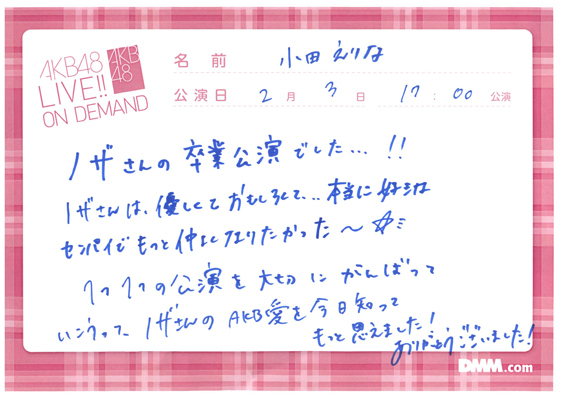 AKB48
LIVE!!
ON DEMAND
AKB
48
名前 小田えりな
公演日 2月3日 17:00 公演
ノザさんの卒業公演でした...!!
ノザさんは、優しくておもしろくて...本当に好きな
センパイでもっと仲よくなりたかった〜☆ミ
1つ1つの公演を大切にがんばって
いこうって、ノザさんのAKB愛を今日知って
もっと思えました!
ありがとうございました!
DMM.com